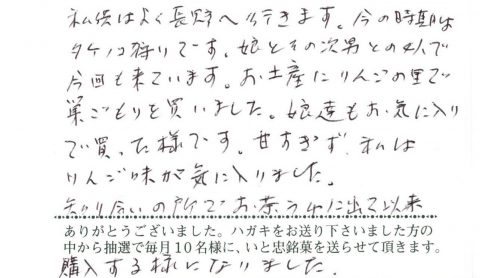 私供はよく長野へ行きます。今の時期は
タケノコ狩りです。娘とその次男との4人で
今回も来ています。お土産にりんごの里で
巣ごもりを買いました。娘達もお気に入り
で買った様です。甘すぎず、私は
りんご味が気に入りました。
知り合いの所でお茶うけに出て以来
ありがとうございました。ハガキをお送り下さいました方の
中から抽選で毎月10名様に、いと忠銘菓を送らせて頂きます。
購入する様になりました。